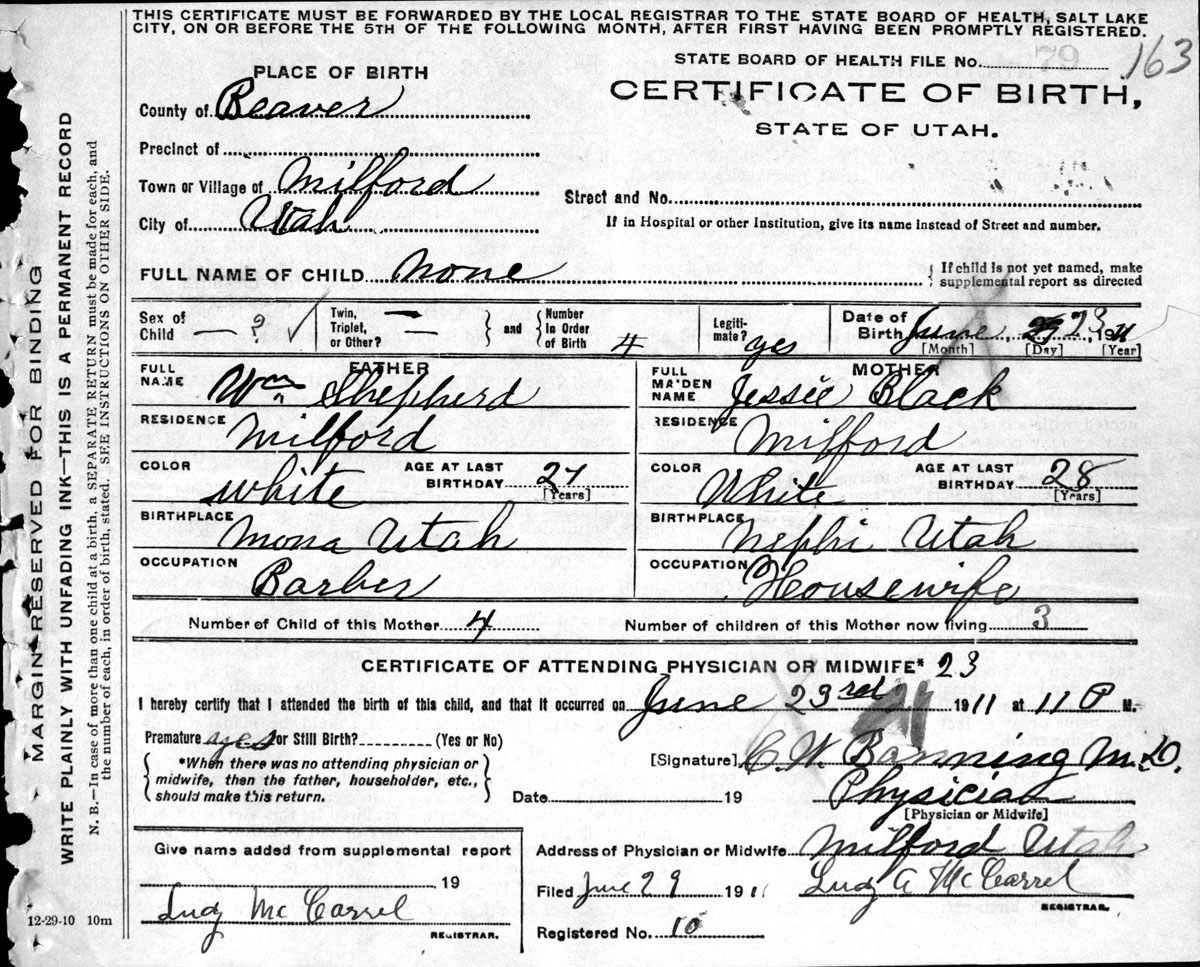 THIS CERTIFICATE MUST BE FORWARDED BY THE LOCAL REGISTRAR TO THE STATE BOARD OF HEALTH, SALT LAKE
CITY, ON OR BEFORE THE 5TH OF THE FOLLOWING MONTH, AFTER FIRST HAVING BEEN PROMPTLY REGISTERED.
STATE BOARD OF HEALTH FILE No. 79 163
CERTIFICATE OF BIRTH,
STATE OF UTAH.
PLACE OF BIRTH
County of Beaver
Precinct of
Town or Village of Milford
City of Utah
Street and No.
If in Hospital or other Institution, give its name instead of Street and number.
FULL NAME OF CHILD None
{ If child is not yet named, make
supplemental report as directed
Sex of Child — ? ✓
Twin, Triplet, or Other? —
and
Number In Order of Birth 4
Legiti-mate? yes
Date of Birth June 23, 1911
[Month] [Day] [Year]
FATHER
FULL NAME Wm Shepherd
RESIDENCE Milford
COLOR white
AGE AT LAST BIRTHDAY 27 [Years]
BIRTHPLACE Mona Utah
OCCUPATION Barber
MOTHER
FULL MAIDEN NAME Jessie Black
RESIDENCE Milford
COLOR White
AGE AT LAST BIRTHDAY 28 [Years]
BIRTHPLACE Nephi Utah
OCCUPATION Housewife
Number of Child of this Mother 4
Number of children of this Mother now living 3
CERTIFICATE OF ATTENDING PHYSICIAN OR MIDWIFE* 23
I hereby certify that I attended the birth of this child, and that it occurred on June 23rd 1911 at 11 P M.
Premature yes or Still Birth? (Yes or No)
*When there was no attending physician or
midwife, then the father, householder, etc.,
should make this return.
[Signature] C. W. Banning M.D.
Date 19
Physician
[Physician or Midwife]
Give name added from supplemental report
19
Ludy McCarrel
REGISTRAR.
Address of Physician or Midwife Milford Utah
Filed June 29 1911 Ludy A McCarrel
REGISTRAR.
Registered No. 10
12-29-10 10m
MARGIN RESERVED FOR BINDING
WRITE PLAINLY WITH UNFADING INK—THIS IS A PERMANENT RECORD
N. B.—In case of more than one child at a birth, a SEPARATE RETURN must be made for each, and
the number of each, in order of birth, stated. SEE INSTRUCTIONS ON OTHER SIDE.